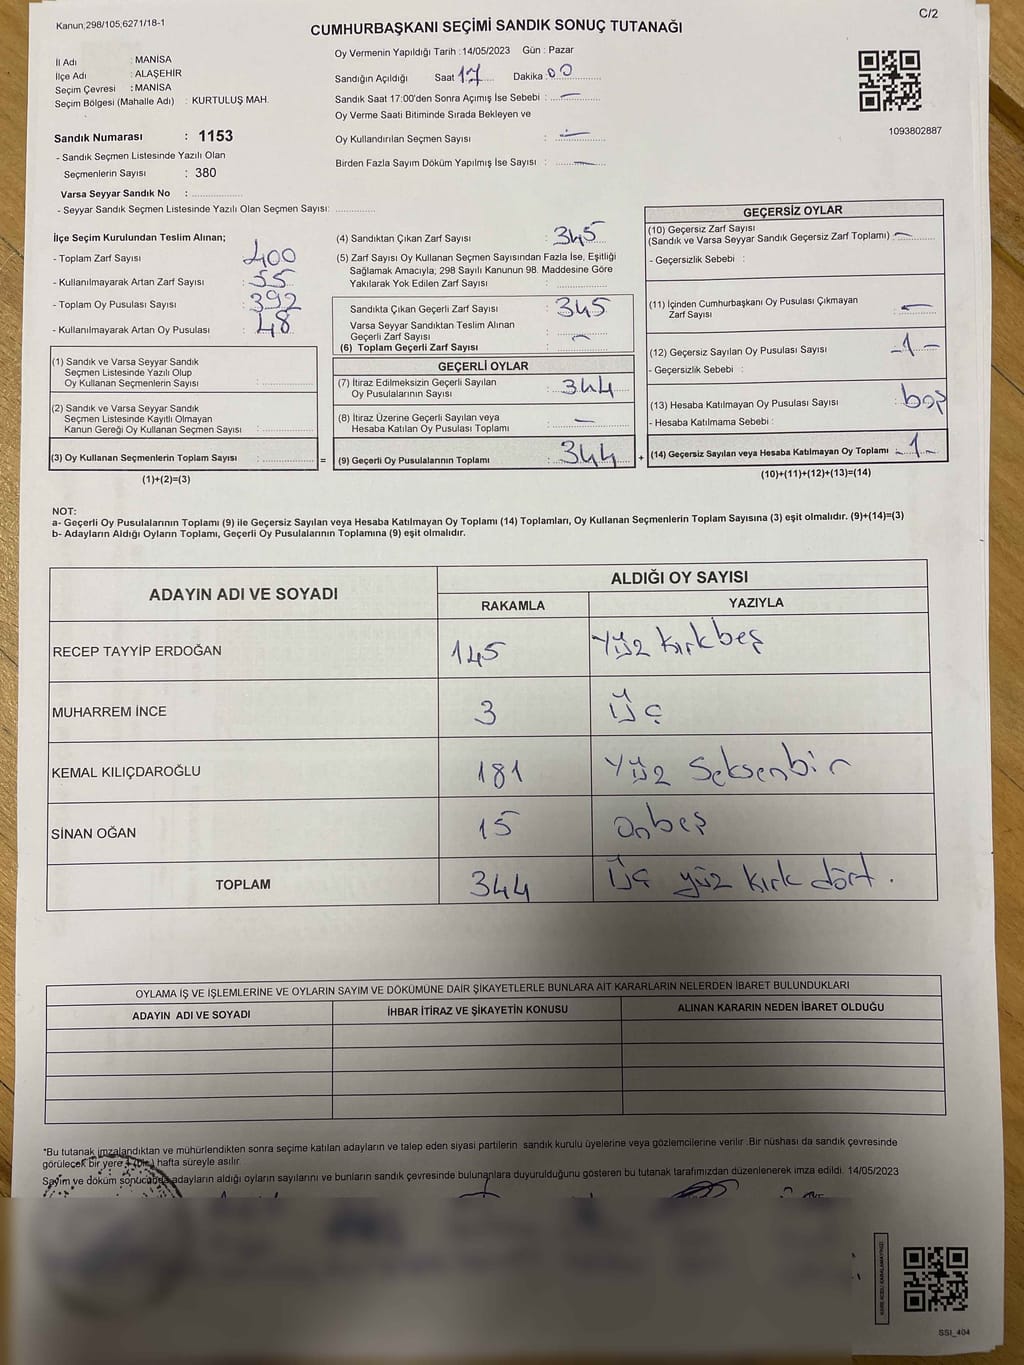 Kanun;298/105,6271/18-1
C/2
CUMHURBAŞKANI SEÇİMİ SANDIK SONUÇ TUTANAĞI
İl Adı : MANİSA
İlçe Adı : ALAŞEHİR
Seçim Çevresi : MANİSA
Seçim Bölgesi (Mahalle Adı) : KURTULUŞ MAH.
Sandık Numarası : 1153
- Sandık Seçmen Listesinde Yazılı Olan
Seçmenlerin Sayısı : 380
Varsa Seyyar Sandık No :
- Seyyar Sandık Seçmen Listesinde Yazılı Olan Seçmen Sayısı:
Oy Vermenin Yapıldığı Tarih :14/05/2023 Gün : Pazar
Sandığın Açıldığı Saat 17 Dakika : 00
Sandık Saat 17:00'den Sonra Açımış İse Sebebi : —
Oy Verme Saati Bitiminde Sırada Bekleyen ve
Oy Kullandırılan Seçmen Sayısı : —
Birden Fazla Sayım Döküm Yapılmış İse Sayısı : —
1093802887
İlçe Seçim Kurulundan Teslim Alınan;
- Toplam Zarf Sayısı : 400
- Kullanılmayarak Artan Zarf Sayısı : 55
- Toplam Oy Pusulası Sayısı : 392
- Kullanılmayarak Artan Oy Pusulası : 48
(1) Sandık ve Varsa Seyyar Sandık
Seçmen Listesinde Yazılı Olup
Oy Kullanan Seçmenlerin Sayısı :
(2) Sandık ve Varsa Seyyar Sandık
Seçmen Listesinde Kayıtlı Olmayan
Kanun Gereği Oy Kullanan Seçmen Sayısı :
(3) Oy Kullanan Seçmenlerin Toplam Sayısı : =
(1)+(2)=(3)
(4) Sandıktan Çıkan Zarf Sayısı : 345
(5) Zarf Sayısı Oy Kullanan Seçmen Sayısından Fazla İse, Eşitliği
Sağlamak Amacıyla, 298 Sayılı Kanunun 98. Maddesine Göre
Yakılarak Yok Edilen Zarf Sayısı :
Sandıkta Çıkan Geçerli Zarf Sayısı : 345
Varsa Seyyar Sandıktan Teslim Alınan
Geçerli Zarf Sayısı : —
(6) Toplam Geçerli Zarf Sayısı :
GEÇERLİ OYLAR
(7) İtiraz Edilmeksizin Geçerli Sayılan
Oy Pusulalarının Sayısı : 344
(8) İtiraz Üzerine Geçerli Sayılan veya
Hesaba Katılan Oy Pusulası Toplamı : —
(9) Geçerli Oy Pusulalarının Toplamı : 344 +
GEÇERSİZ OYLAR
(10) Geçersiz Zarf Sayısı
(Sandık ve Varsa Seyyar Sandık Geçersiz Zarf Toplamı) : —
- Geçersizlik Sebebi :
(11) İçinden Cumhurbaşkanı Oy Pusulası Çıkmayan
Zarf Sayısı : —
(12) Geçersiz Sayılan Oy Pusulası Sayısı : -1-
- Geçersizlik Sebebi :
(13) Hesaba Katılmayan Oy Pusulası Sayısı : boş
- Hesaba Katılmama Sebebi :
(14) Geçersiz Sayılan veya Hesaba Katılmayan Oy Toplamı -1-
(10)+(11)+(12)+(13)=(14)
NOT:
a- Geçerli Oy Pusulalarının Toplamı (9) ile Geçersiz Sayılan veya Hesaba Katılmayan Oy Toplamı (14) Toplamları, Oy Kullanan Seçmenlerin Toplam Sayısına (3) eşit olmalıdır. (9)+(14)=(3)
b- Adayların Aldığı Oyların Toplamı, Geçerli Oy Pusulalarının Toplamına (9) eşit olmalıdır.
ADAYIN ADI VE SOYADI ALDIĞI OY SAYISI
RAKAMLA YAZIYLA
RECEP TAYYİP ERDOĞAN 145 Yüz kırkbeş
MUHARREM İNCE 3 Üç
KEMAL KILIÇDAROĞLU 181 Yüz Seksenbir
SİNAN OĞAN 15 Onbeş
TOPLAM 344 Üç yüz kırk dört.
OYLAMA İŞ VE İŞLEMLERİNE VE OYLARIN SAYIM VE DÖKÜMÜNE DAİR ŞİKAYETLERLE BUNLARA AİT KARARLARIN NELERDEN İBARET BULUNDUKLARI
ADAYIN ADI VE SOYADI İHBAR İTİRAZ VE ŞİKAYETİN KONUSU ALINAN KARARIN NEDEN İBARET OLDUĞU
*Bu tutanak imzalandıktan ve mühürlendikten sonra seçime katılan adayların ve talep eden siyasi partilerin sandık kurulu üyelerine veya gözlemcilerine verilir .Bir nüshası da sandık çevresinde
görülecek bir yere 1 (bir) hafta süreyle asılır.
Sayım ve döküm sonucunda adayların aldığı oyların sayılarını ve bunların sandık çevresinde bulunanlara duyurulduğunu gösteren bu tutanak tarafımızdan düzenlenerek imza edildi. 14/05/2023
SSI_404